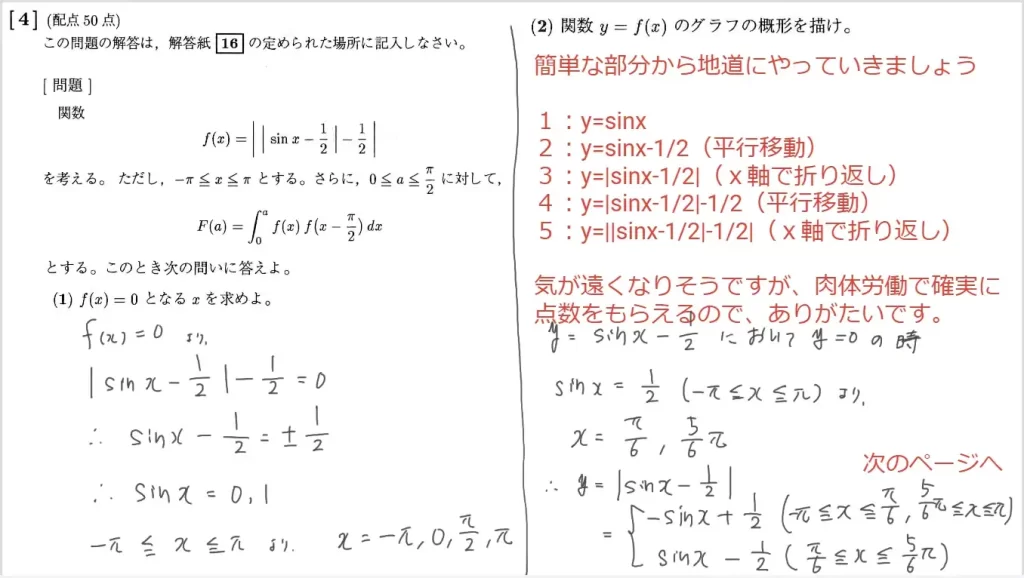 [4] (配点 50 点)
この問題の解答は，解答紙 16 の定められた場所に記入しなさい。
[ 問題 ]
関数
f(x) = | | sin x − 1/2 | − 1/2 |
を考える。ただし，−π ≦ x ≦ π とする。さらに，0 ≦ a ≦ π/2 に対して，
F(a) = ∫₀ᵃ f(x) f(x − π/2) dx
とする。このとき次の問いに答えよ。
(1) f(x) = 0 となる x を求めよ。
f(x) = 0 より,
| sin x − 1/2 | − 1/2 = 0
∴ sin x − 1/2 = ± 1/2
∴ sin x = 0, 1
−π ≦ x ≦ π より, x = −π, 0, π/2, π
(2) 関数 y = f(x) のグラフの概形を描け。
簡単な部分から地道にやっていきましょう
１：y=sinx
２：y=sinx-1/2（平行移動）
３：y=|sinx-1/2|（ｘ軸で折り返し）
４：y=|sinx-1/2|-1/2（平行移動）
５：y=||sinx-1/2|-1/2|（ｘ軸で折り返し）
気が遠くなりそうですが、肉体労働で確実に
点数をもらえるので、ありがたいです。
y = sin x − 1/2 において y = 0 の時
sin x = 1/2 (−π ≦ x ≦ π) より,
x = π/6, 5/6 π
次のページへ
∴ y = | sin x − 1/2 |
= { −sin x + 1/2 (−π ≦ x ≦ π/6, 5/6 π ≦ x ≦ π)
sin x − 1/2 (π/6 ≦ x ≦ 5/6 π)